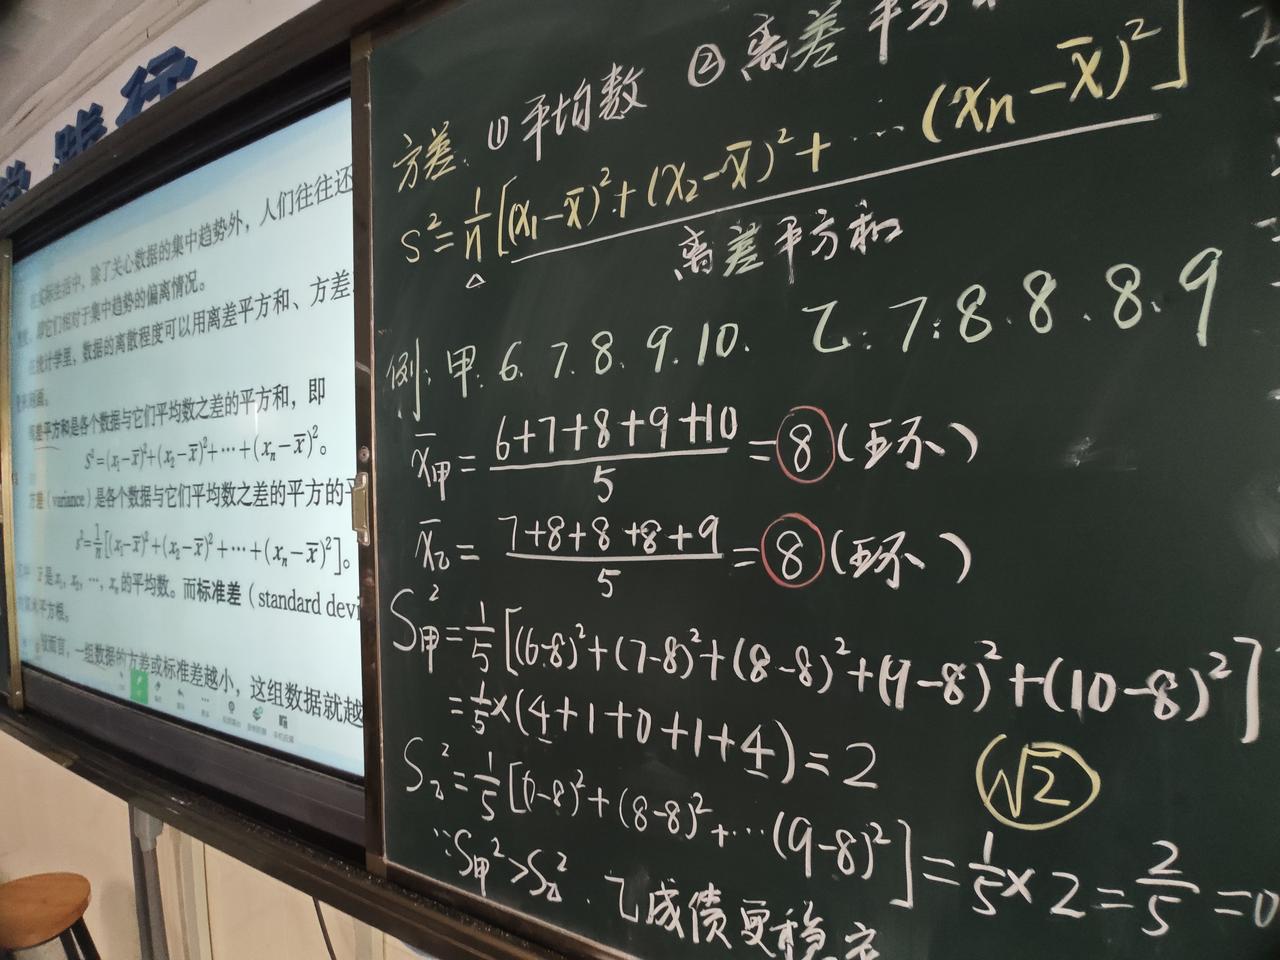 践行
生活中，除了关心数据的集中趋势外，人们往往还
它们相对于集中趋势的偏离情况。
统计学里，数据的离散程度可以用离差平方和、方差
离差平方和是各个数据与它们平均数之差的平方和，即
S²=(x₁-x̄)²+(x₂-x̄)²+…+(xₙ-x̄)²。
方差（variance）是各个数据与它们平均数之差的平方的平
s²=1/n[(x₁-x̄)²+(x₂-x̄)²+…+(xₙ-x̄)²]。
x̄是x₁，x₂，…，xₙ的平均数。而标准差（standard devi
平方根。
般而言，一组数据的方差或标准差越小，这组数据就越
方差. ①平均数 ②离差平方和
S²=1/n[(x₁-x̄)²+(x₂-x̄)²+…(xₙ-x̄)²]
离差平方和
例：甲：6、7、8、9、10. 乙：7、8、8、8、9
x̄甲=(6+7+8+9+10)/5=8(环)
x̄乙=(7+8+8+8+9)/5=8(环)
S甲²=1/5[(6-8)²+(7-8)²+(8-8)²+(9-8)²+(10-8)²]
=1/5×(4+1+0+1+4)=2
√2
S乙²=1/5[(7-8)²+(8-8)²+…(9-8)²]=1/5×2=2/5=0
∵S甲²>S乙². 乙成绩更稳定